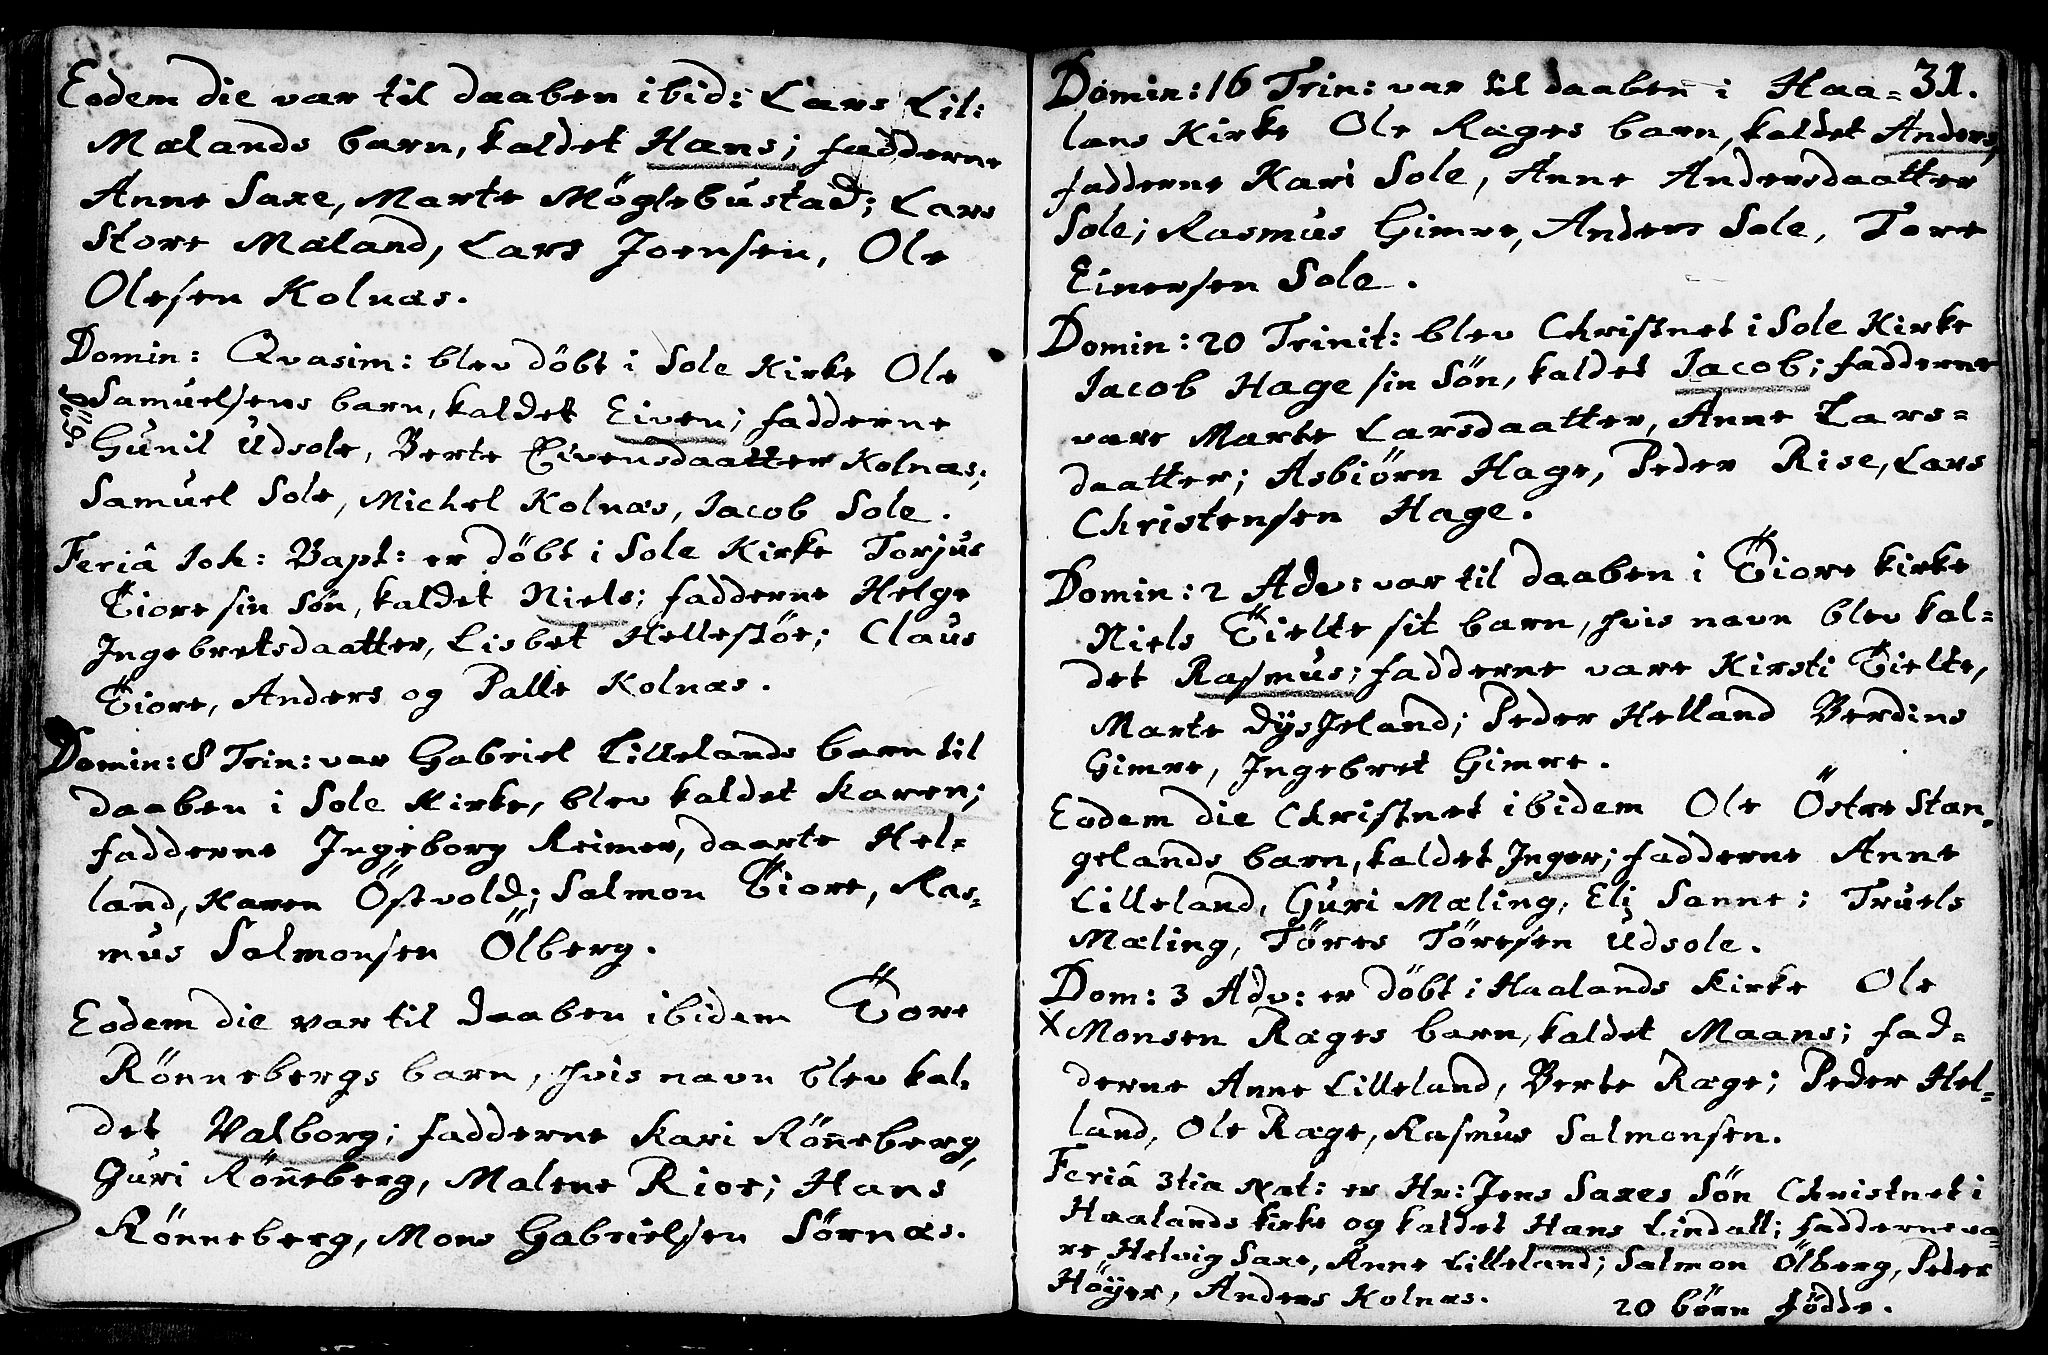 Eodem die var til daaben ibid: Lars Lil:
Mælands barn, kaldet Hans; fadderne
Anne Saxe, Marte Möglebustad; Lars
Store Mæland, Lars Joensen, Ole
Olesen Kolnæs.
Domin: Qvasim: blev döbt i Sole Kirke Ole
Samuelsens barn, kaldet Eiven; fadderne
Gunil Udsole, Berte Eivensdaatter Kolnæs;
Samuel Sole, Michel Kolnæs, Jacob Sole.
Feriâ Joh: Bapt: er döbt i Sole Kirke Torjus
Tiore sin Sön, kaldet Niels; fadderne Helge
Ingebretsdaatter, Lisbet Hellestöe; Claus
Tiore, Anders og Palle Kolnæs.
Domin: 8 Trin: var Gabriel Lillelands barn til
daaben i Sole Kirke, blev kaldet Karen;
fadderne Ingeborg Reimer, daarte Hel=
land, Karen Östvold; Salmon Tiore, Ras=
mus Salmonsen Ölberg.
Eodem die var til daaben ibidem Tore
Rönnebergs barn, hvis navn blev kal=
det Valborg; fadderne Kari Rönneberg,
Guri Rönneberg, Malene Riœ; Hans
Rönneberg, Mons Gabrielsen Sörnæs.
31.
Domin: 16 Trin: var til daaben i Haa=
lans Kirke Ole Ræges barn, kaldet Anders,
fadderne Kari Sole, Anne Andersdaatter
Sole; Rasmus Gimre, Anders Sole, Tore
Einersen Sole.
Domin: 20 Trinit: blev Christnet i Sole Kirke
Jacob Hage sin Sön, kaldet Jacob; fadderne
vare Marte Larsdaatter, Anne Lars=
daatter; Asbiörn Hage, Peder Rise, Lars
Christensen Hage.
Domin: 2 Adv: var til daaben i Tiore kirke
Niels Tielte sit barn, hvis navn blev kal=
det Rasmus; fadderne vare Kirsti Tielte,
Marte Dysjeland; Peder Helland Berdins
Gimre, Ingebret Gimre.
Eodem die Christnet ibidem Ole Östre Stan,
gelands barn, kaldet Inger; fadderne Anne
Lilleland, Guri Mæling, Eli Sanne; Truels
Mæling, Töres Töresen Udsole.
Dom: 3 Adv: er döbt i Haalands Kirke Ole
X Monsen Ræges barn, kaldet Maans; fad=
derne Anne Lilleland, Berte Ræge; Peder Hel=
land, Ole Ræge, Rasmus Salmonsen.
Feriâ 3tia Nat: er Hr: Jens Saxes Sön Christnet i
Haalands kirke og kaldet Hans Lindall; fadderne va=
re Helvig Saxe, Anne Lilleland; Salmon Ölberg, Peder
Höyer, Anders Kolnæs.
20 börn födde.